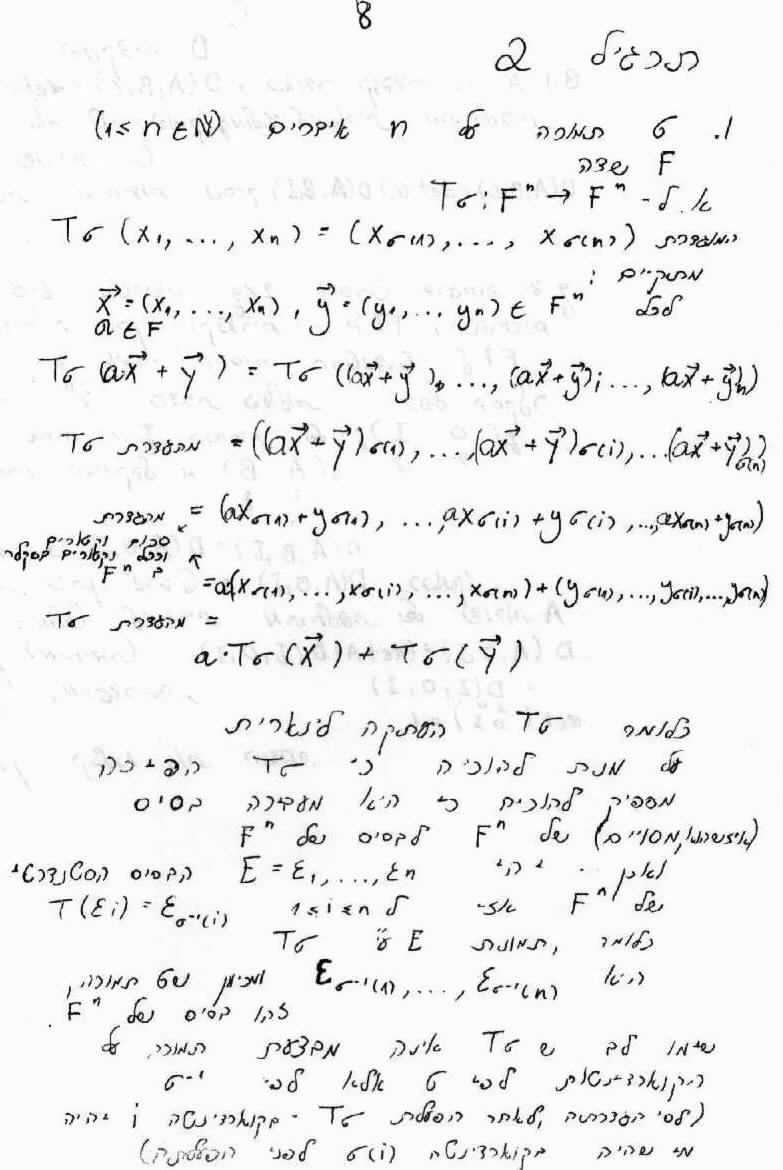 8
תרגיל 2
1. σ תמורה על n איברים (1 ≤ n ∈ N)
F שדה
א. ל- Tσ: Fⁿ → Fⁿ
המוגדרת Tσ (x₁, ..., xₙ) = (x_σ(1), ..., x_σ(n))
מתקיים:
לכל x⃗ = (x₁, ..., xₙ), y⃗ = (y₁, ... yₙ) ∈ Fⁿ
a ∈ F
Tσ (ax⃗ + y⃗) = Tσ ((ax⃗+y⃗)₁, ..., (ax⃗+y⃗)ᵢ ..., (ax⃗+y⃗)ₙ)
מהגדרת Tσ = ((ax⃗+y⃗)_σ(1), ..., (ax⃗+y⃗)_σ(i), ... (ax⃗+y⃗)_σ(n))
מהגדרת = (ax_σ(1)+y_σ(1), ..., ax_σ(i)+y_σ(i), ..., ax_σ(n)+y_σ(n))
סכום וקטורים
וכפל וקטורים בסקלר
ב Fⁿ = a(x_σ(1), ..., x_σ(i), ..., x_σ(n)) + (y_σ(1), ..., y_σ(i), ..., y_σ(n))
מהגדרת Tσ =
a·Tσ(x⃗) + Tσ(y⃗)
כלומר Tσ העתקה לינארית
על מנת להוכיח כי Tσ הפיכה
מספיק להוכיח כי היא מעבירה בסיס
(איזשהו, מסויים) של Fⁿ לבסיס של Fⁿ
ואכן יהי E = ε₁, ..., εₙ הבסיס הסטנדרטי
של Fⁿ אזי ל 1≤i≤n T(εᵢ) = ε_σ⁻¹(i)
כלומר, תמונת E ע"י Tσ
היא ε_σ⁻¹(1), ..., ε_σ⁻¹(n) ומכיוון שσ תמורה,
זהו בסיס של Fⁿ.
שימו לב ש Tσ אינה מבצעת תמורה על
הקואורדינטות לפי σ אלא לפי σ⁻¹
(לפי הגדרתה, לאחר הפעלת Tσ בקוארדינטה i יהיה
מי שהיה בקוארדינטה σ(i) לפני הפעלתה)